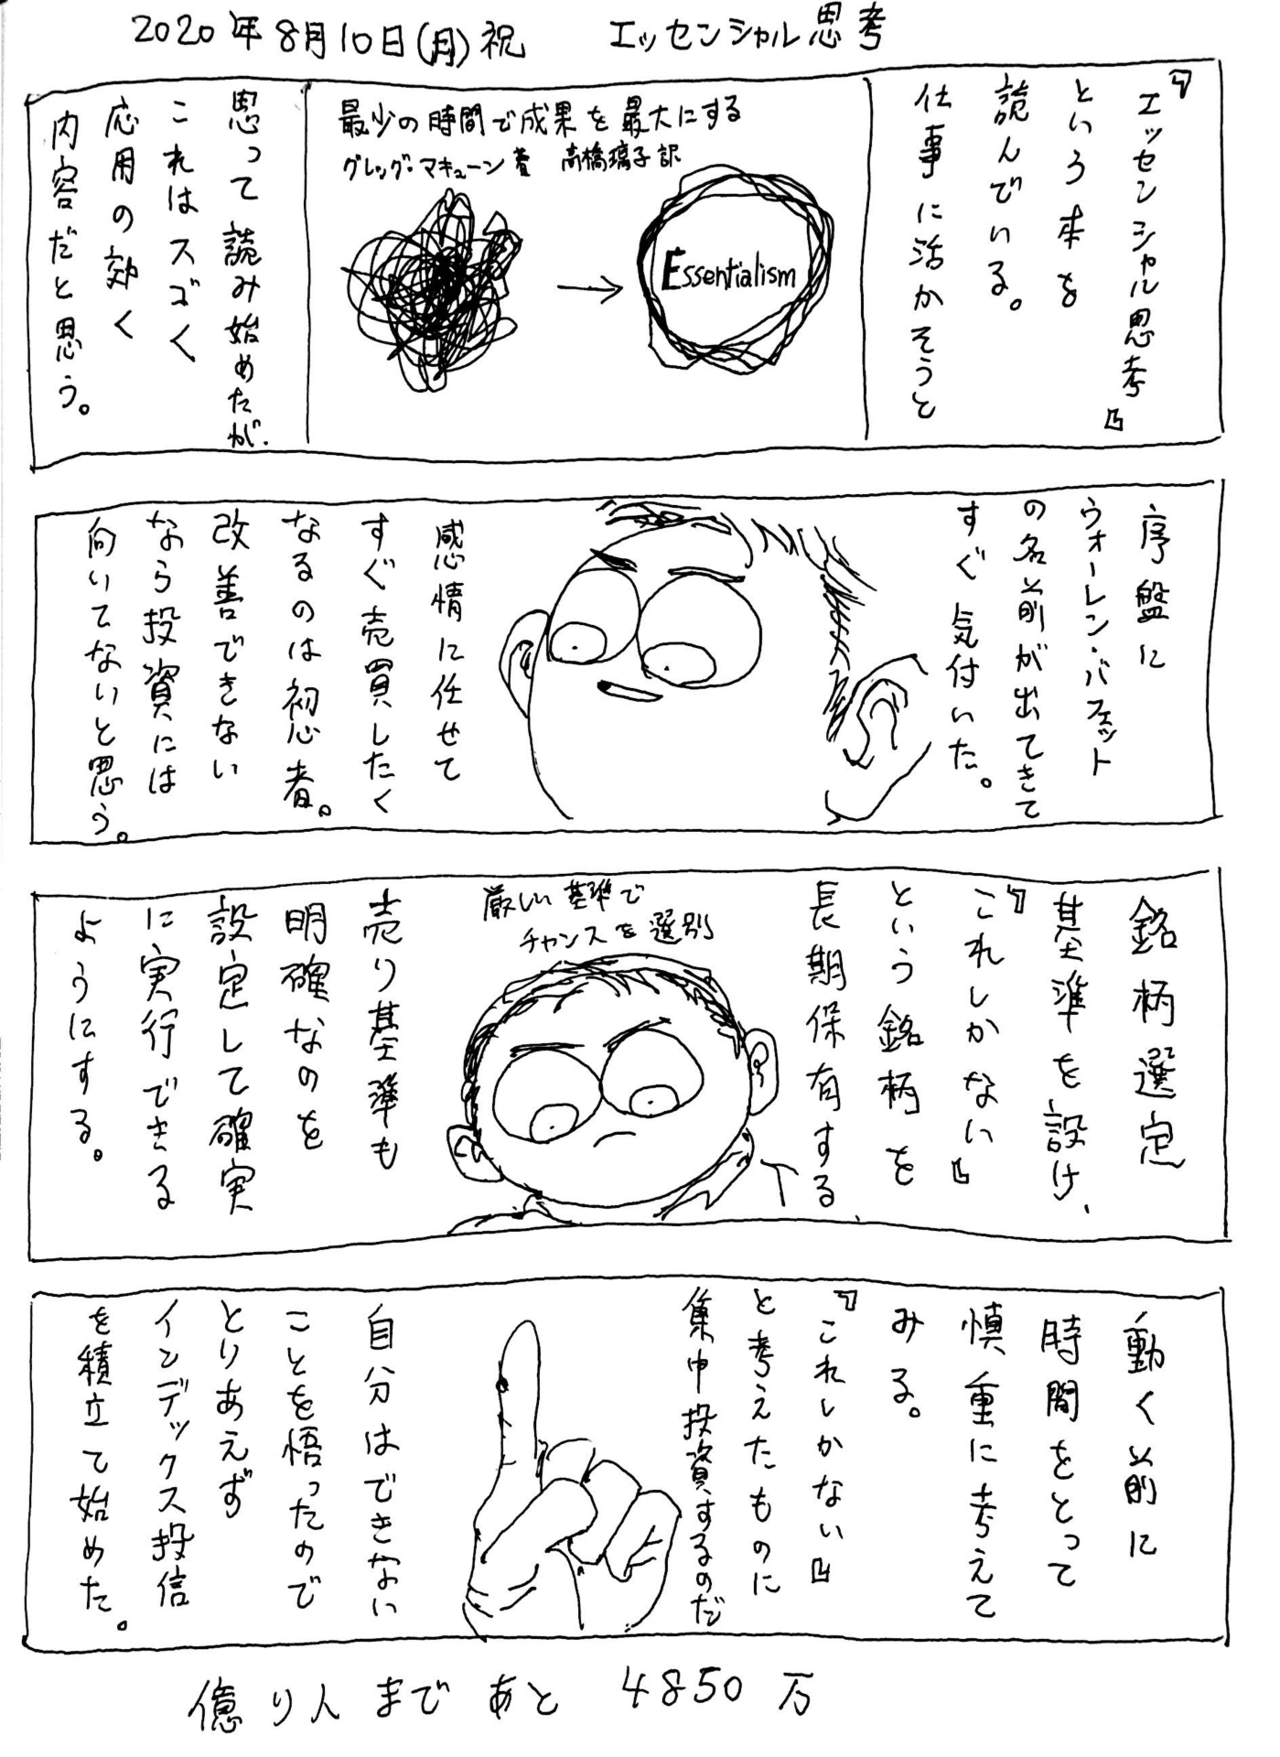 2020年8月10日(月)祝 エッセンシャル思考
『エッセンシャル思考』
という本を
読んでいる。
仕事に活かそうと
最少の時間で成果を最大にする
グレッグ・マキューン著 高橋璃子訳
Essentialism
思って読み始めたが、
これはスゴく
応用の効く
内容だと思う。
序盤に
ウォーレン・バフェット
の名前が出てきて
すぐ気付いた。
感情に任せて
すぐ売買したく
なるのは初心者。
改善できない
なら投資には
向いてないと思う。
銘柄選定
基準を設け、
『これしかない』
という銘柄を
長期保有する、
厳しい基準で
チャンスを選別
売り基準も
明確なのを
設定して確実
に実行できる
ようにする。
動く前に
時間をとって
慎重に考えて
みる。
『これしかない』
と考えたものに
集中投資するのだ
自分はできない
ことを悟ったので
とりあえず
インデックス投信
を積立て始めた。
億り人まであと 4850万